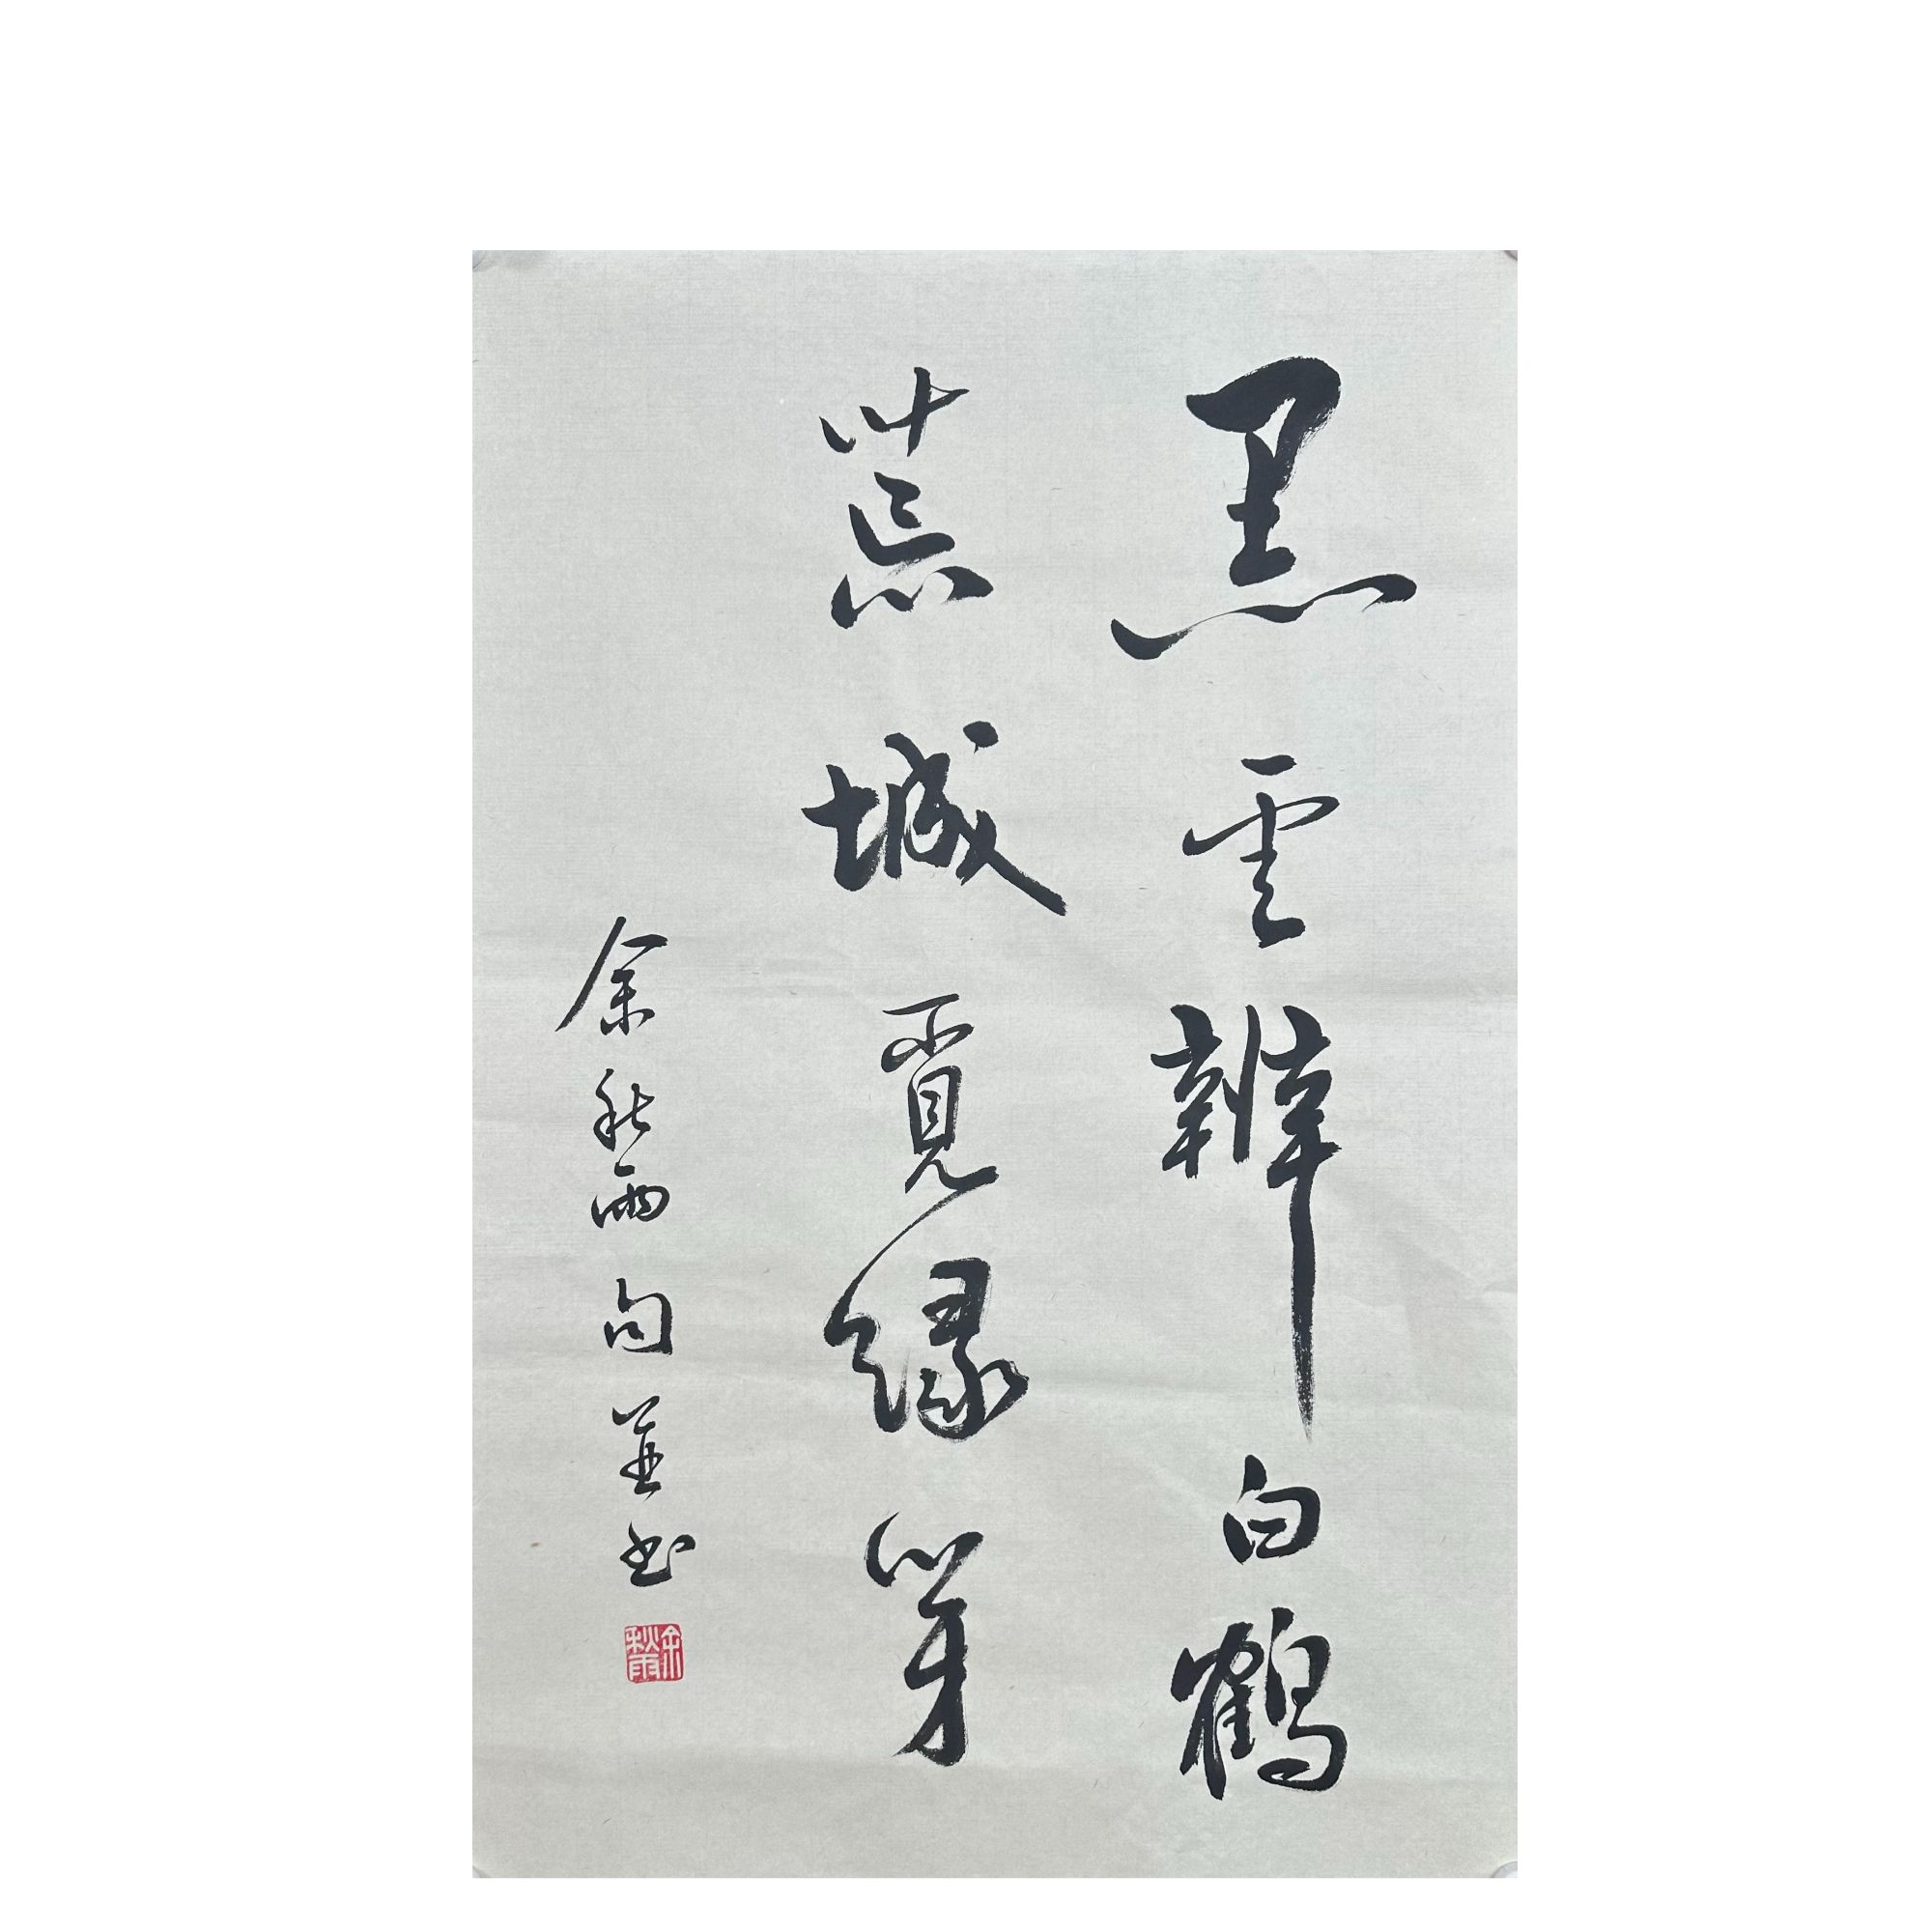 黑雲辨白鶴
荒城覓綠芽
余秋雨句並书
余秋雨